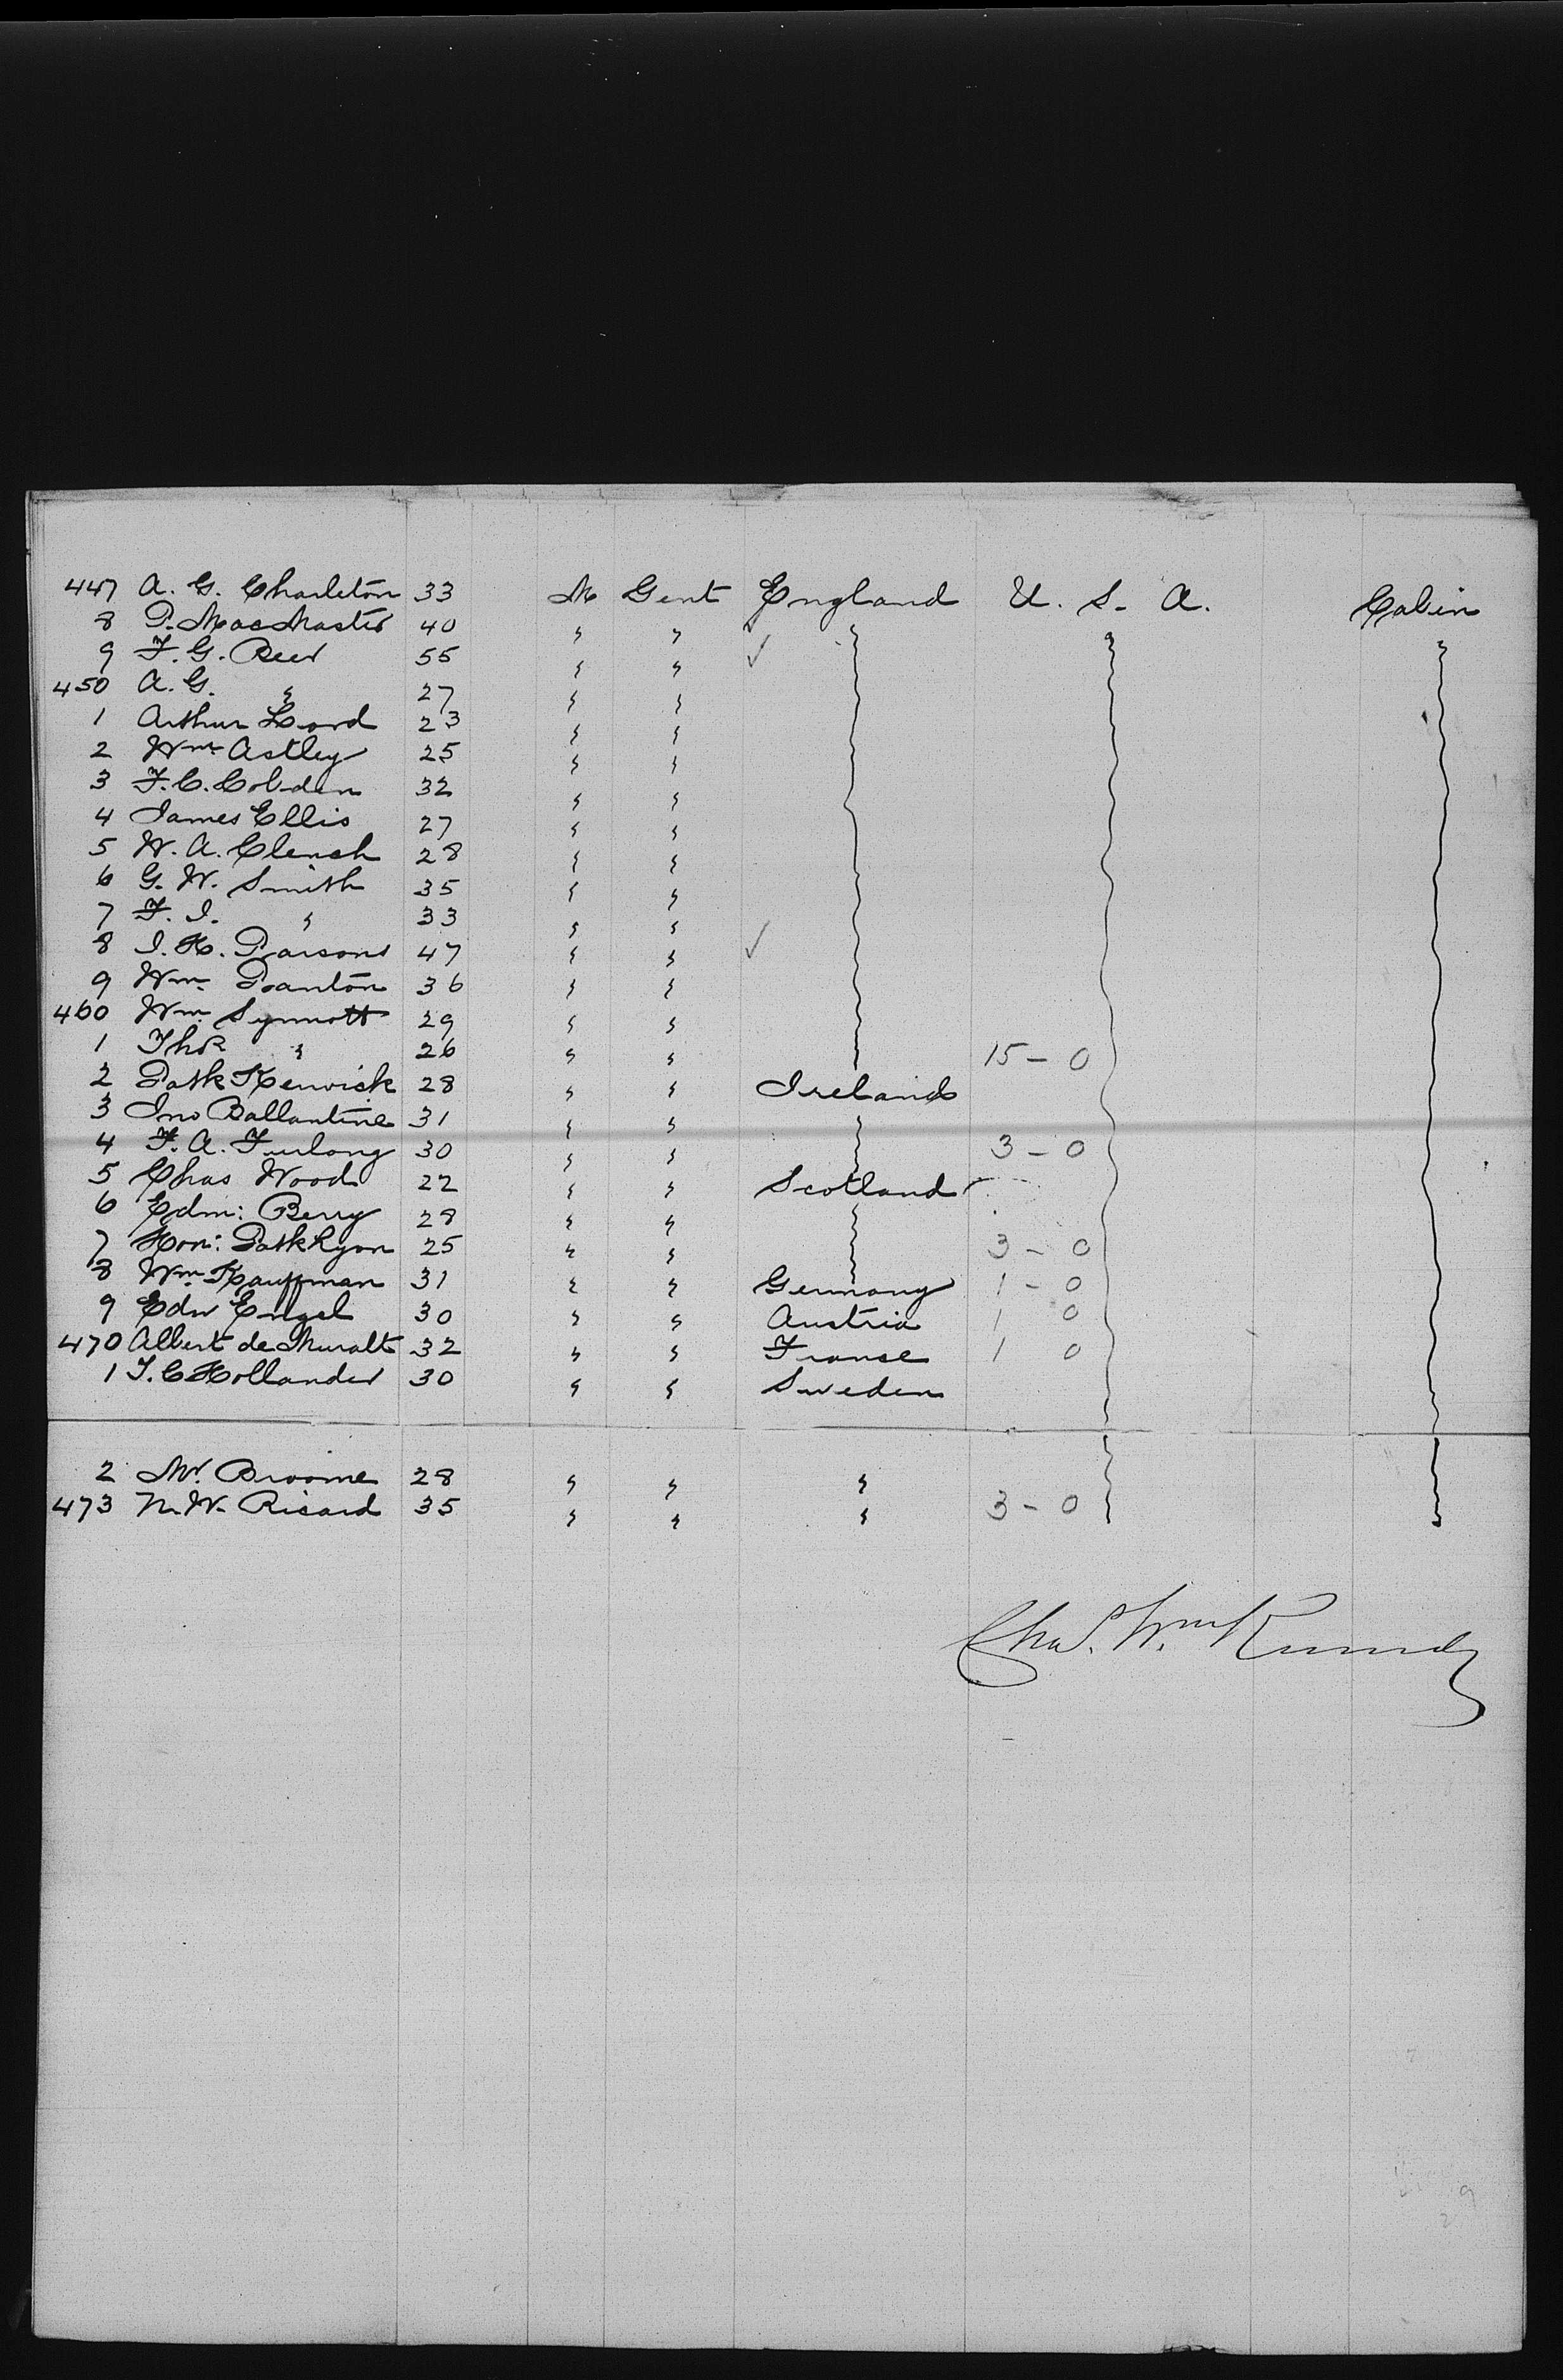 447 A. G. Charleton 33 M Gent England U. S. A. Cabin
8 P. MacMaster 40 " "
9 F. G. Reed 55 " " ✓
450 A. G. " 27 " "
1 Arthur Lord 23 " "
2 Wm. Astley 25 " "
3 F. C. Cobden 32 " "
4 James Ellis 27 " "
5 W. A. Clench 28 " "
6 G. W. Smith 35 " "
7 F. J. " 33 " "
8 J. H. Parsons 47 " " ✓
9 Wm. Panton 36 " "
460 Wm. Synnott 29 " "
1 Thos " 26 " " 15 - 0
2 Patk Kenwick 28 " " Ireland
3 Jno Ballantine 31 " "
4 F. A. Furlong 30 " " 3 - 0
5 Chas Wood 22 " " Scotland
6 Edm: Berry 28 " "
7 Hon: Patk Lyon 25 " " 3 - 0
8 Wm. Kauffman 31 " " Germany 1 - 0
9 Edw Engel 30 " " Austria 1 0
470 Albert de Muralt 32 " " France 1 0
1 T. C Hollander 30 " " Sweden
2 Mr. Broome 28 " " "
473 N. W. Ricard 35 " " " 3 - 0
Chas. Wm